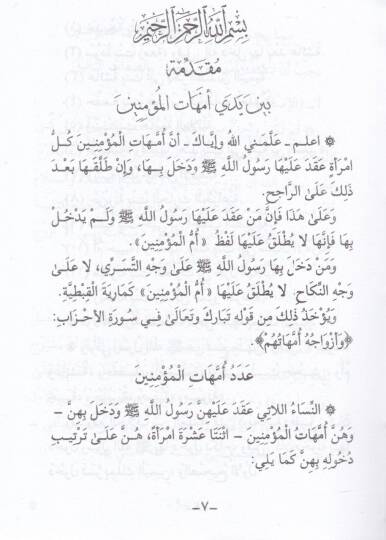 بِسْمِ اللَّهِ الرَّحْمَٰنِ الرَّحِيمِ
مُقَدِّمَة
بَيْنَ يَدَيْ أُمَّهَاتِ الْمُؤْمِنِينَ
* اعلم – عَلَّمَنِي اللهُ وَإِيَّاكَ – أَنَّ أُمَّهَاتِ الْمُؤْمِنِينَ كُلُّ
امْرَأَةٍ عَقَدَ عَلَيْهَا رَسُولُ اللَّهِ ﷺ وَدَخَلَ بِهَا، وَإِنْ طَلَّقَهَا بَعْدَ
ذَلِكَ عَلَى الرَّاجِحِ.
وَعَلَى هَذَا فَإِنَّ مَنْ عَقَدَ عَلَيْهَا رَسُولُ اللَّهِ ﷺ وَلَمْ يَدْخُلْ
بِهَا فَإِنَّهَا لَا يُطْلَقُ عَلَيْهَا لَفْظُ «أُمُّ الْمُؤْمِنِينَ».
وَمَنْ دَخَلَ بِهَا رَسُولُ اللَّهِ ﷺ عَلَى وَجْهِ التَّسَرِّي، لَا عَلَى
وَجْهِ النِّكَاحِ. لَا يُطْلَقُ عَلَيْهَا «أُمُّ الْمُؤْمِنِينَ» كَمَارِيَةَ الْقِبْطِيَّةِ.
وَيُؤْخَذُ ذَلِكَ مِنْ قَوْلِهِ تَبَارَكَ وَتَعَالَىٰ فِي سُورَةِ الْأَحْزَابِ:
﴿وَأَزْوَاجُهُ أُمَّهَاتُهُمْ﴾.
عَدَدُ أُمَّهَاتِ الْمُؤْمِنِينَ
* النِّسَاءُ اللَّاتِي عَقَدَ عَلَيْهِنَّ رَسُولُ اللَّهِ ﷺ وَدَخَلَ بِهِنَّ –
وَهُنَّ أُمَّهَاتُ الْمُؤْمِنِينَ – اثْنَتَا عَشْرَةَ امْرَأَةً، هُنَّ عَلَىٰ تَرْتِيبِ
دُخُولِهِ بِهِنَّ كَمَا يَلِي:
-٧-